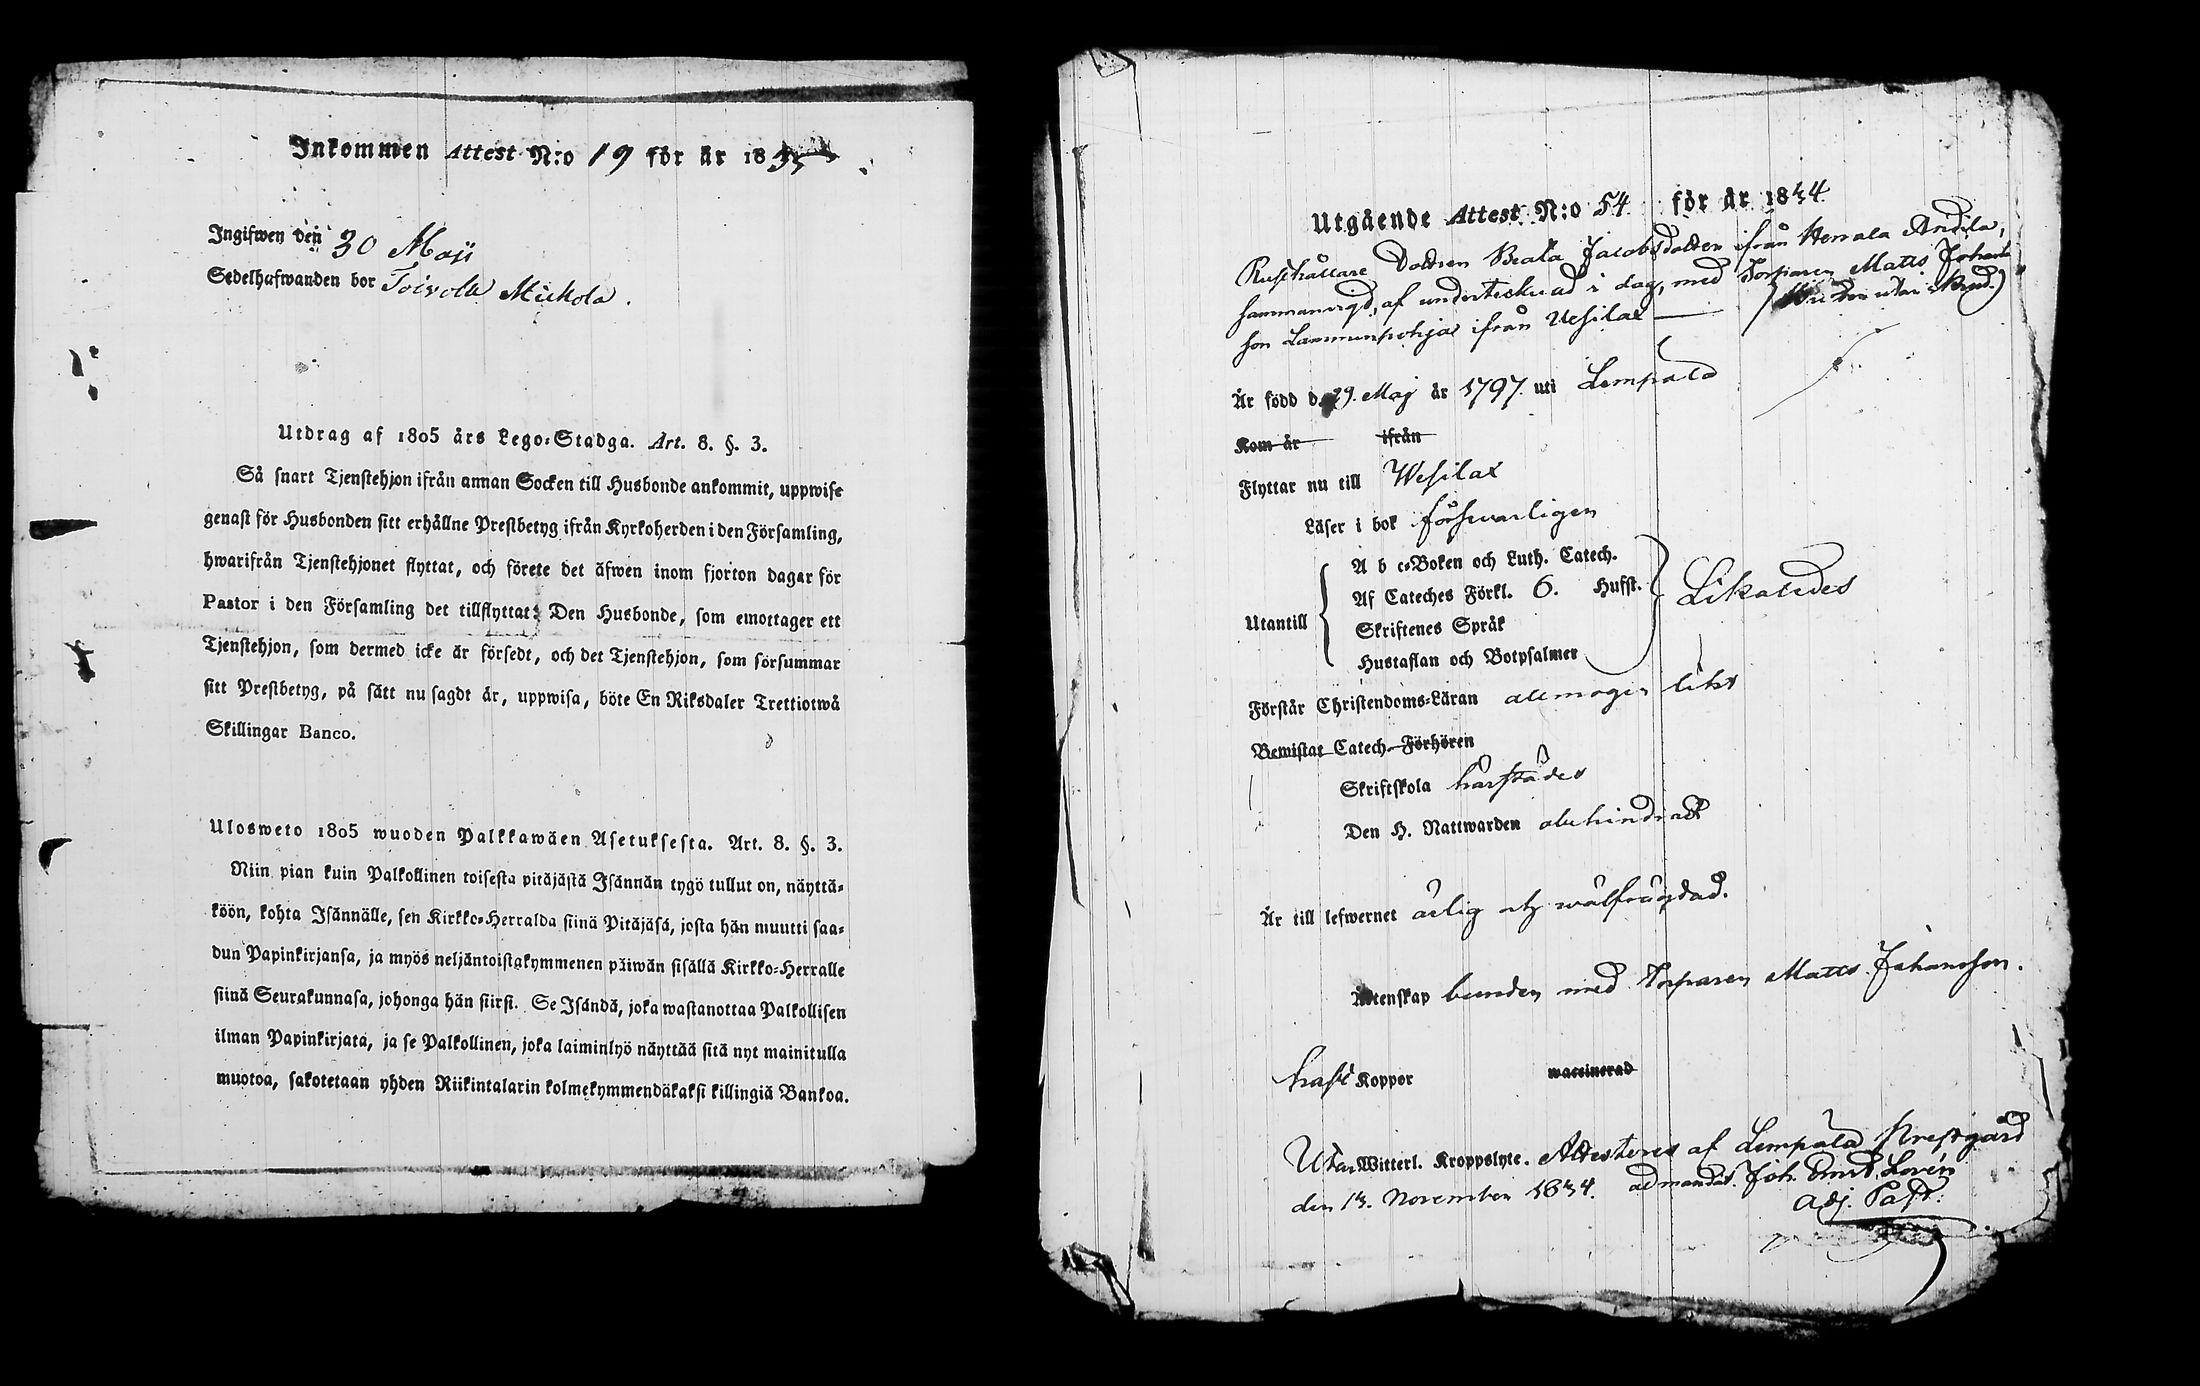 Inkommen Attest N:o 19 för år 1835
Ingifwen den 30 Maji
Sedelhafwanden bor Toivola Mickola.
Utdrag af 1805 års Lego-Stadga. Art. 8. §. 3.
Så snart Tjenstehjon ifrån annan Socken till Husbonde ankommit, uppwise
genast för Husbonden sitt erhållne Prestbetyg ifrån Kyrkoherden i den Församling,
hwarifrån Tjenstehjonet flyttat, och förete det äfwen inom fjorton dagar för
Pastor i den Församling det tillflyttat: Den Husbonde, som emottager ett
Tjenstehjon, som dermed icke är försedt, och det Tjenstehjon, som försummar
sitt Prestbetyg, på sätt nu sagdt är, uppwisa, böte En Riksdaler Trettiotwå
Skillingar Banco.
Ulosweto 1805 wuoden Palkkawäen Asetuksesta. Art. 8. §. 3.
Niin pian kuin Palkollinen toisesta pitäjästä Isännän tygö tullut on, näyttä-
köön, kohta Isännälle, sen Kirkko-Herralda siinä Pitäjäsä, josta hän muutti saa-
dun Papinkirjansa, ja myös neljäntoistakymmenen päiwän sisällä Kirkko-Herralle
siinä Seurakunnasa, johonga hän siirsi. Se Isändä, joka wastanottaa Palkollisen
ilman Papinkirjata, ja se Palkollinen, joka laiminlyö näyttää sitä nyt mainitulla
muotoa, sakotetaan yhden Riikintalarin kolmekymmendäkaksi killingiä Bankoa.
Utgående Attest N:o 54. för år 1834.
Rusthållare Dottren Beata Jacobsdotter ifrån Herrala Andila,
sammanvigd, af undertecknad i dag, med Torparen Matts Johans
son Lammenpohja ifrån Vesilax
Är född d. 29. Maj år 1797. uti Lempälä
Kom år ifrån
Flyttar nu till Wesilax
Läser i bok försvarligen
A b c-Boken och Luth. Catech.
Af Cateches Förkl. 6. Hufst.
Utantill Likaledes
Skriftenes Språk
Hustaflan och Botpsalmer
Förstår Christendoms-Läran allmogen likt
Bewistat Catech. Förhören
Skriftskola härstädes
Den H. Nattwarden obehindrad
Är till lefwernet ärlig och wälfrägdad.
Äktenskap bunden med Torparen Matts Johansson.
haft Koppor waccinerad
Utan Witterl. Kroppslyte. Attesteres af Lempälä Prestgård
den 13. November 1834. ad mandat. Joh. Ernst Lorén
Adj. Past.